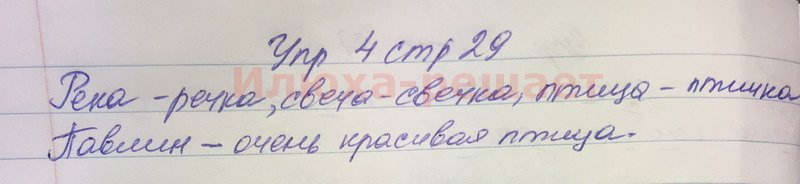 Упр 4 стр 29
Илюха-решает
Река - речка, свеча - свечка, птица - птичка
Павлин - очень красивая птица.